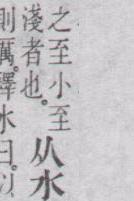 之至小至从水
淺者也
則厲釋水曰以